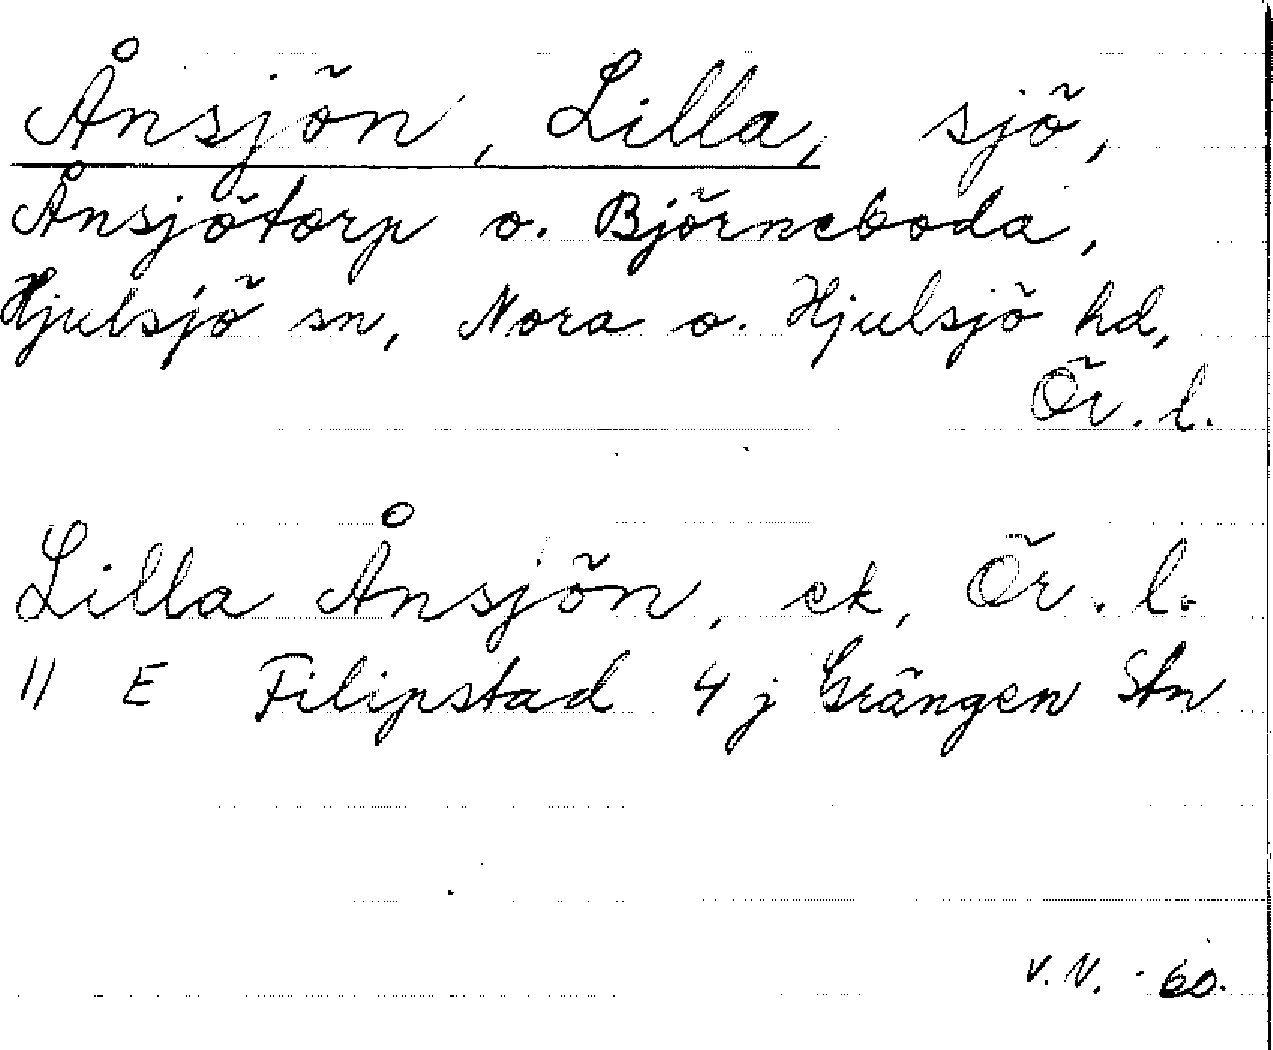 Ånsjön, Lilla, sjö,
Ånsjötorp o. Björneboda,
Hjulsjö sn, Nora o. Hjulsjö hd,
Ör. l.
Lilla Ånsjön, ek, Ör. l.
11 E Filipstad 4 j Grängen Stn
V.N. -60.